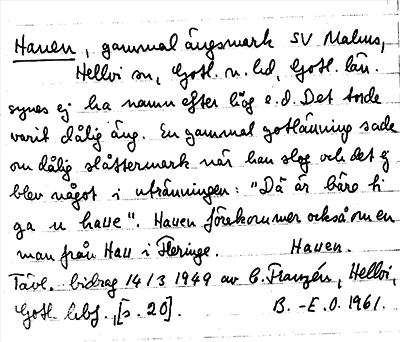 Hauen, gammal ängsmark SV Malms,
Hellvi sn, Gotl. n. hd, Gotl. län.
synes ej ha namn efter läg e.d. Det torde
varit dålig äng. En gammal gotlänning sade
om dålig slåttermark när han slog och det ej
blev något i utränningen: "Dä är bäre ti
ga u haue". Hauen förekommer också om en
man från Hau i Fleringe. Hauen.
Tävl. bidrag 14/3 1949 av C. Franzén, Hellvi,
Gotl. [s. 20]. B.-E.O. 1961.